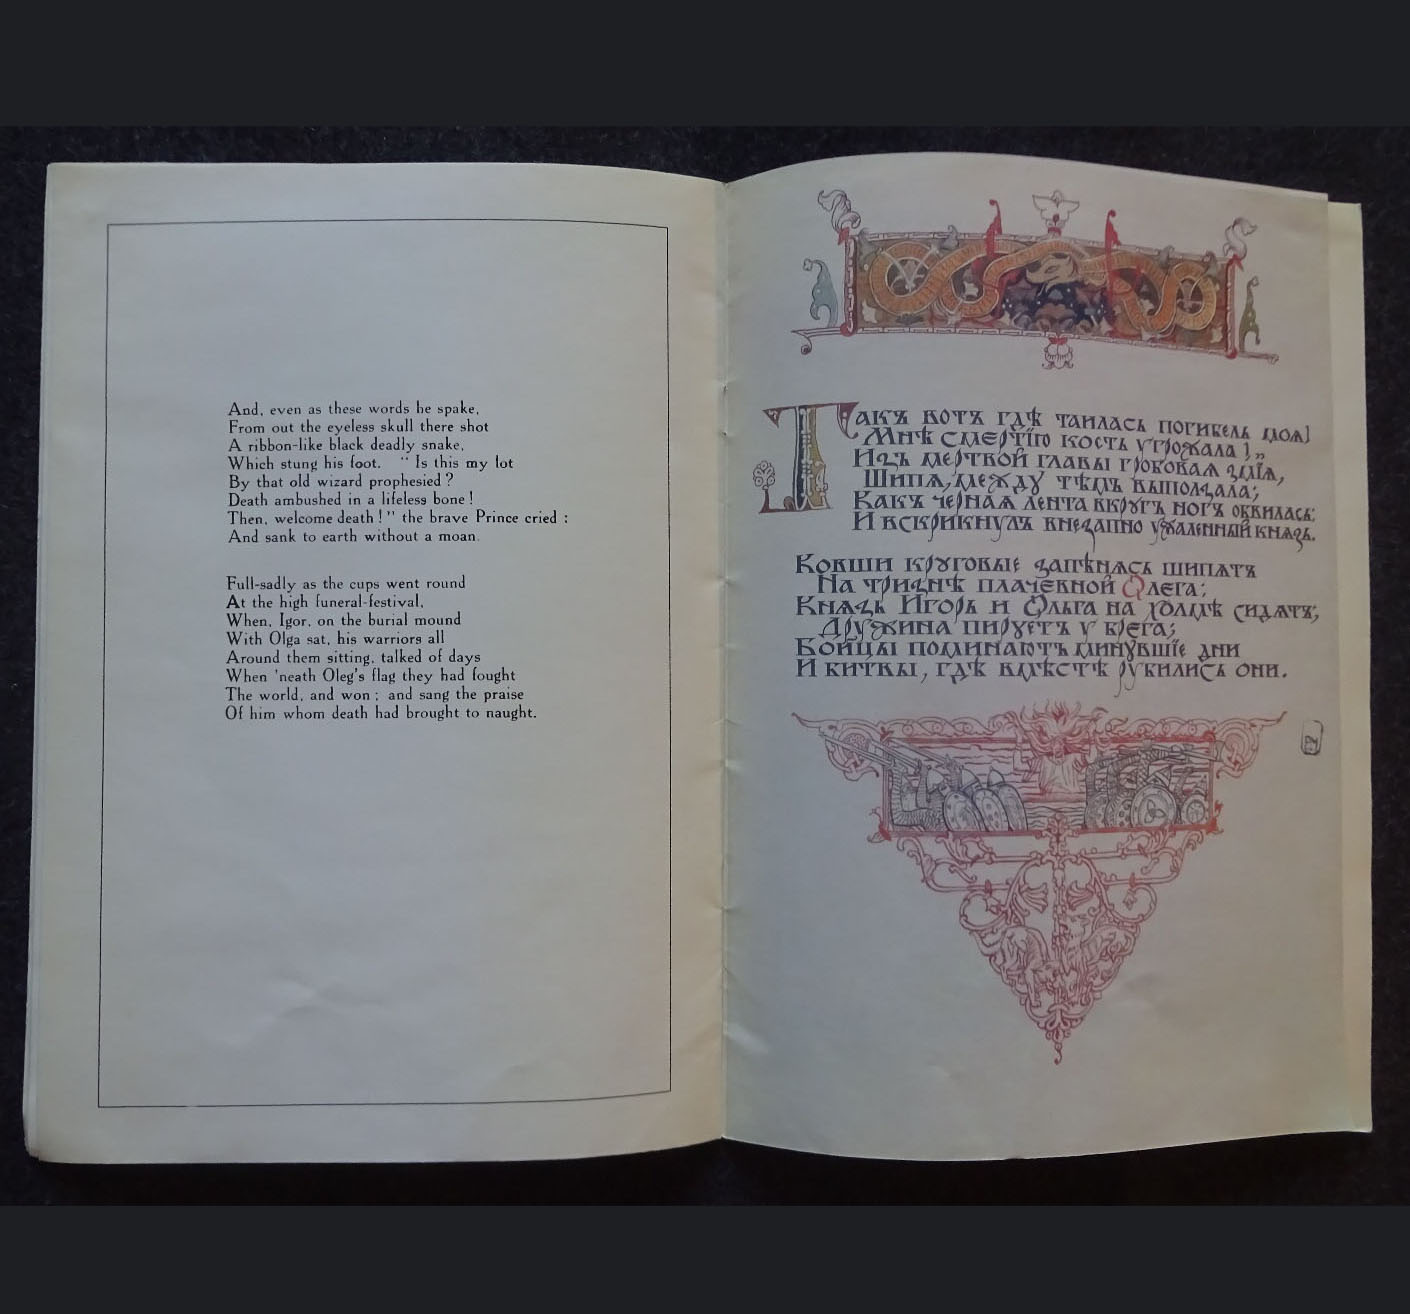 And, even as these words he spake,
From out the eyeless skull there shot
A ribbon-like black deadly snake,
Which stung his foot. " Is this my lot
By that old wizard prophesied ?
Death ambushed in a lifeless bone !
Then, welcome death ! " the brave Prince cried :
And sank to earth without a moan.
Full-sadly as the cups went round
At the high funeral-festival,
When, Igor, on the burial mound
With Olga sat, his warriors all
Around them sitting, talked of days
When 'neath Oleg's flag they had fought
The world, and won ; and sang the praise
Of him whom death had brought to naught.
Такъ вотъ гдѣ таилась погибель моя!
Мнѣ смертію кость угрожала!„
Изъ мертвой главы гробовая змія,
Шипя, между тѣмъ выползала;
Какъ черная лента вкругъ ногъ обвилась:
И вскрикнулъ внезапно ужаленный князь.
Ковши круговые запѣнясь шипятъ
На тризнѣ плачевной Олега:
Князь Игорь и Ольга на холмѣ сидятъ;
Дружина пируетъ у брега;
Бойцы поминаютъ минувшіе дни
И битвы, гдѣ вмѣстѣ рубились они.